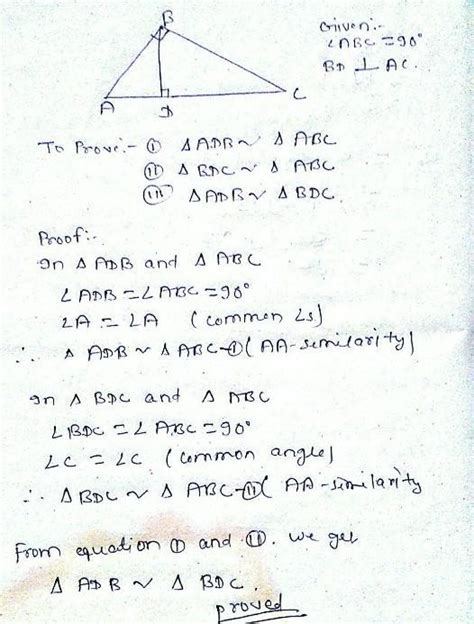 B
Given:-
∠ABC = 90°
BD ⊥ AC.
A
D
C
To Prove:- (i) Δ ADB ~ Δ ABC
(ii) Δ BDC ~ Δ ABC
(iii) Δ ADB ~ Δ BDC.
Proof:-
In Δ ADB and Δ ABC
∠ADB = ∠ABC = 90°
∠A = ∠A (common ∠s)
∴ Δ ADB ~ Δ ABC -(i) (AA-similarity)
In Δ BDC and Δ ABC
∠BDC = ∠ABC = 90°
∠C = ∠C (common angles)
∴ Δ BDC ~ Δ ABC -(ii) ( AA-similarity
From equation (i) and (ii). we get
Δ ADB ~ Δ BDC.
proved